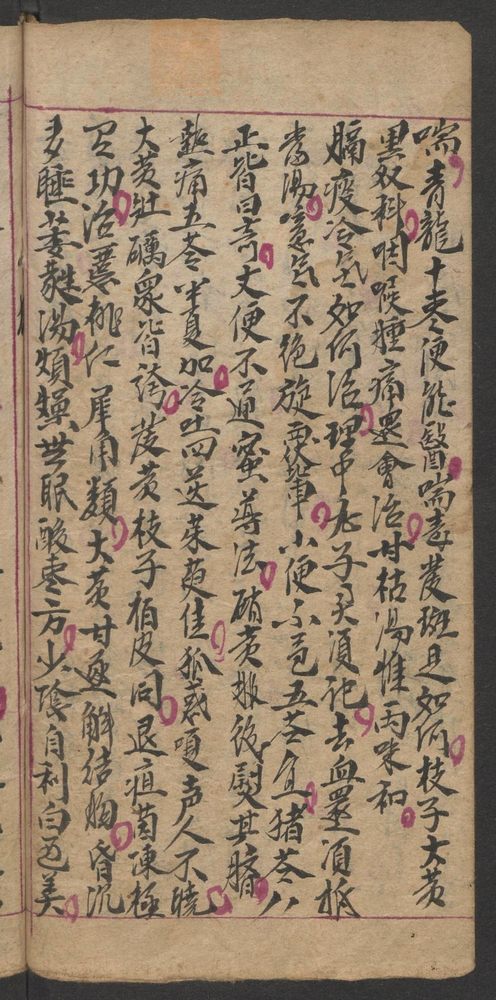 喘青龍十枣便能醫喘毒發斑且如何枝子大黄
黑奴科咽喉腫痛還會治甘桔湯惟两味和
膈痰冷氣如何治理中丸子君須記去血還須抵
當湯噫氣不絶旋覆車小便不通五苓宜猪苓八
正皆曰奇大便不通蜜導法硝黄撒後熨其臍
熱痛五苓半夏加冷吐四逆茱萸佳狐惑嗄声人不曉
大黄䗪礪衆皆誇發黄枝子柏皮同退疸茵陳極
有功治噩桃仁犀角類大黄甘遂解結胸昏沉
多睡葳蕤湯煩燥無眠酸枣方少陰自利白通美